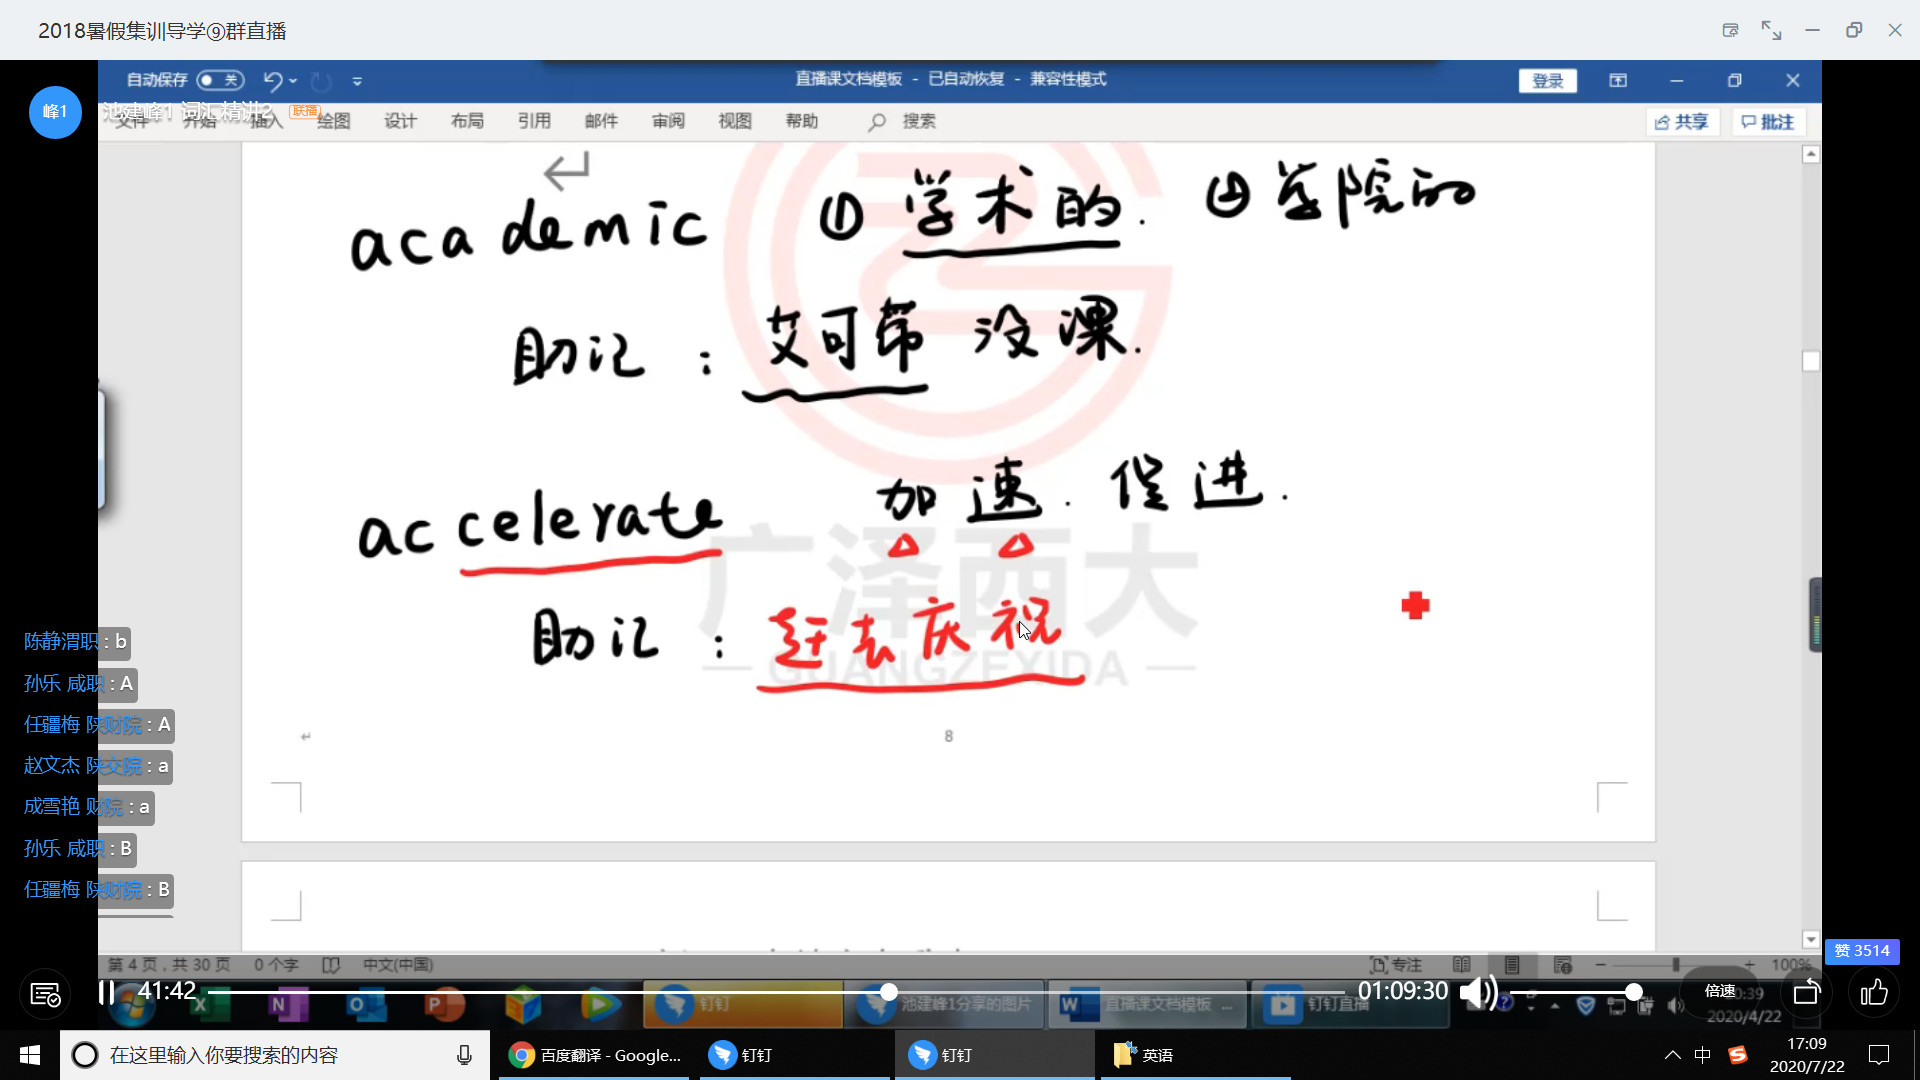 2018暑假集训导学⑨群直播
自动保存 关
直播课文档模板 - 已自动恢复 - 兼容性模式
登录
峰1
池建峰1 词汇精讲2 联播
文件 开始 插入 绘图 设计 布局 引用 邮件 审阅 视图 帮助 搜索
共享 批注
academic ① 学术的. ② 学院的
助记 : 艾可带 没课.
accelerate 加速. 促进.
助记 : 赶去庆祝
广泽西大
GUANGZEXIDA
8
陈静渭职 : b
孙乐 咸职 : A
任疆梅 陕财院 : A
赵文杰 陕交院 : a
成雪艳 财院 : a
孙乐 咸职 : B
任疆梅 陕财院 : B
赞 3514
第 4 页，共 30 页 0 个字 中文(中国)
专注 100%
41:42
01:09:30
倍速
钉钉 池建峰1分享的图片 直播课文档模板 ... 钉钉直播
2020/4/22
在这里输入你要搜索的内容
百度翻译 - Google...
钉钉
钉钉
英语
中
17:09
2020/7/22